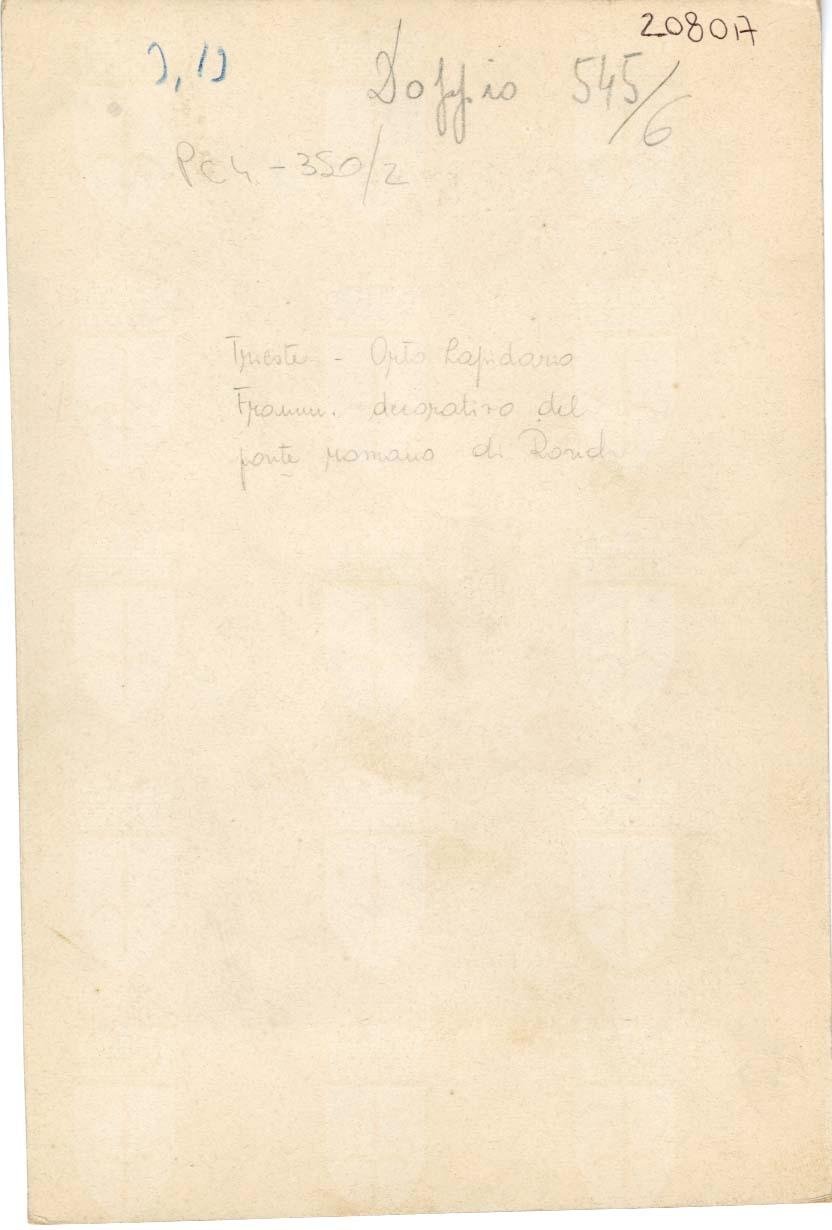 208017
Doppio 545/6
PC4-350/2
Trieste - Orto Lapidario
Framm. decorativo del
ponte romano di Ronchi